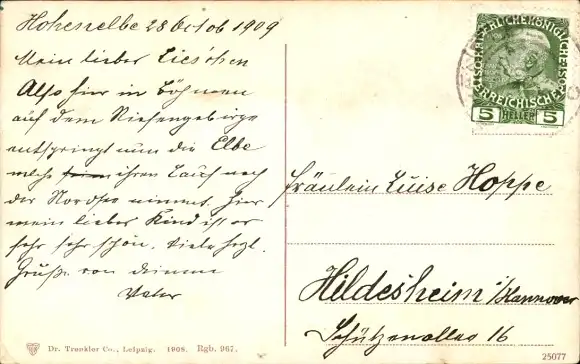 Hohenelbe 28 Octob 1909
Mein lieber Lies'chen
Also hier in Böhmen
auf dem Riesengebirge
entspringt nun die Elbe
welche ihren Lauf nach
der Nordsee nimmt. Hier
mein liebes Kind ist es
sehr sehr schön. Viele herzl.
Grüße von deinem
Vater
KAISERLICHE KÖNIGLICHE
ÖSTERREICHISCHE
5 HELLER 5
Fräulein Luise Hoppe
Hildesheim i/Hannover
Schützenallee 16
Dr. Trenkler Co., Leipzig. 1908. Rgb. 967.
25077